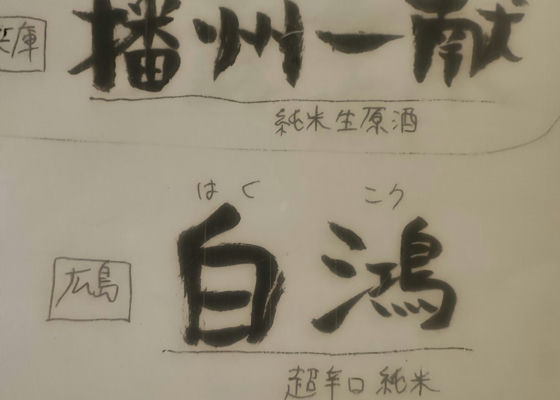 兵庫 播州一献
純米生原酒
はくこう
広島 白鴻
超辛口 純米